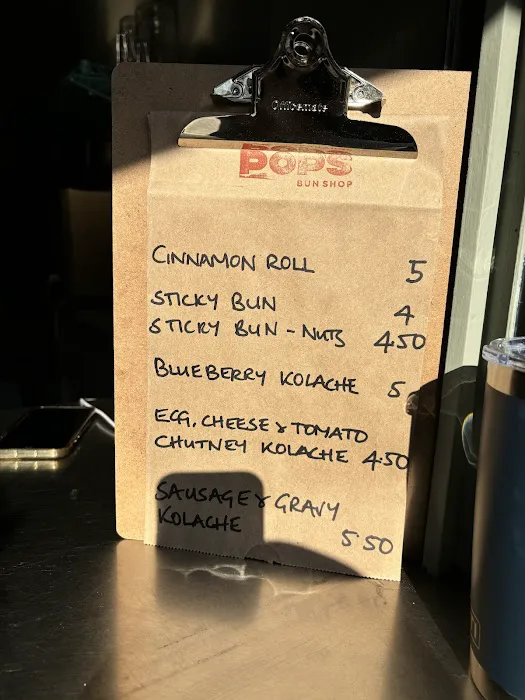 Officemate
POPS
BUN SHOP
CINNAMON ROLL 5
STICKY BUN 4
STICKY BUN - NUTS 450
BLUEBERRY KOLACHE 5
EGG, CHEESE & TOMATO
CHUTNEY KOLACHE 4.50
SAUSAGE & GRAVY
KOLACHE 5 50